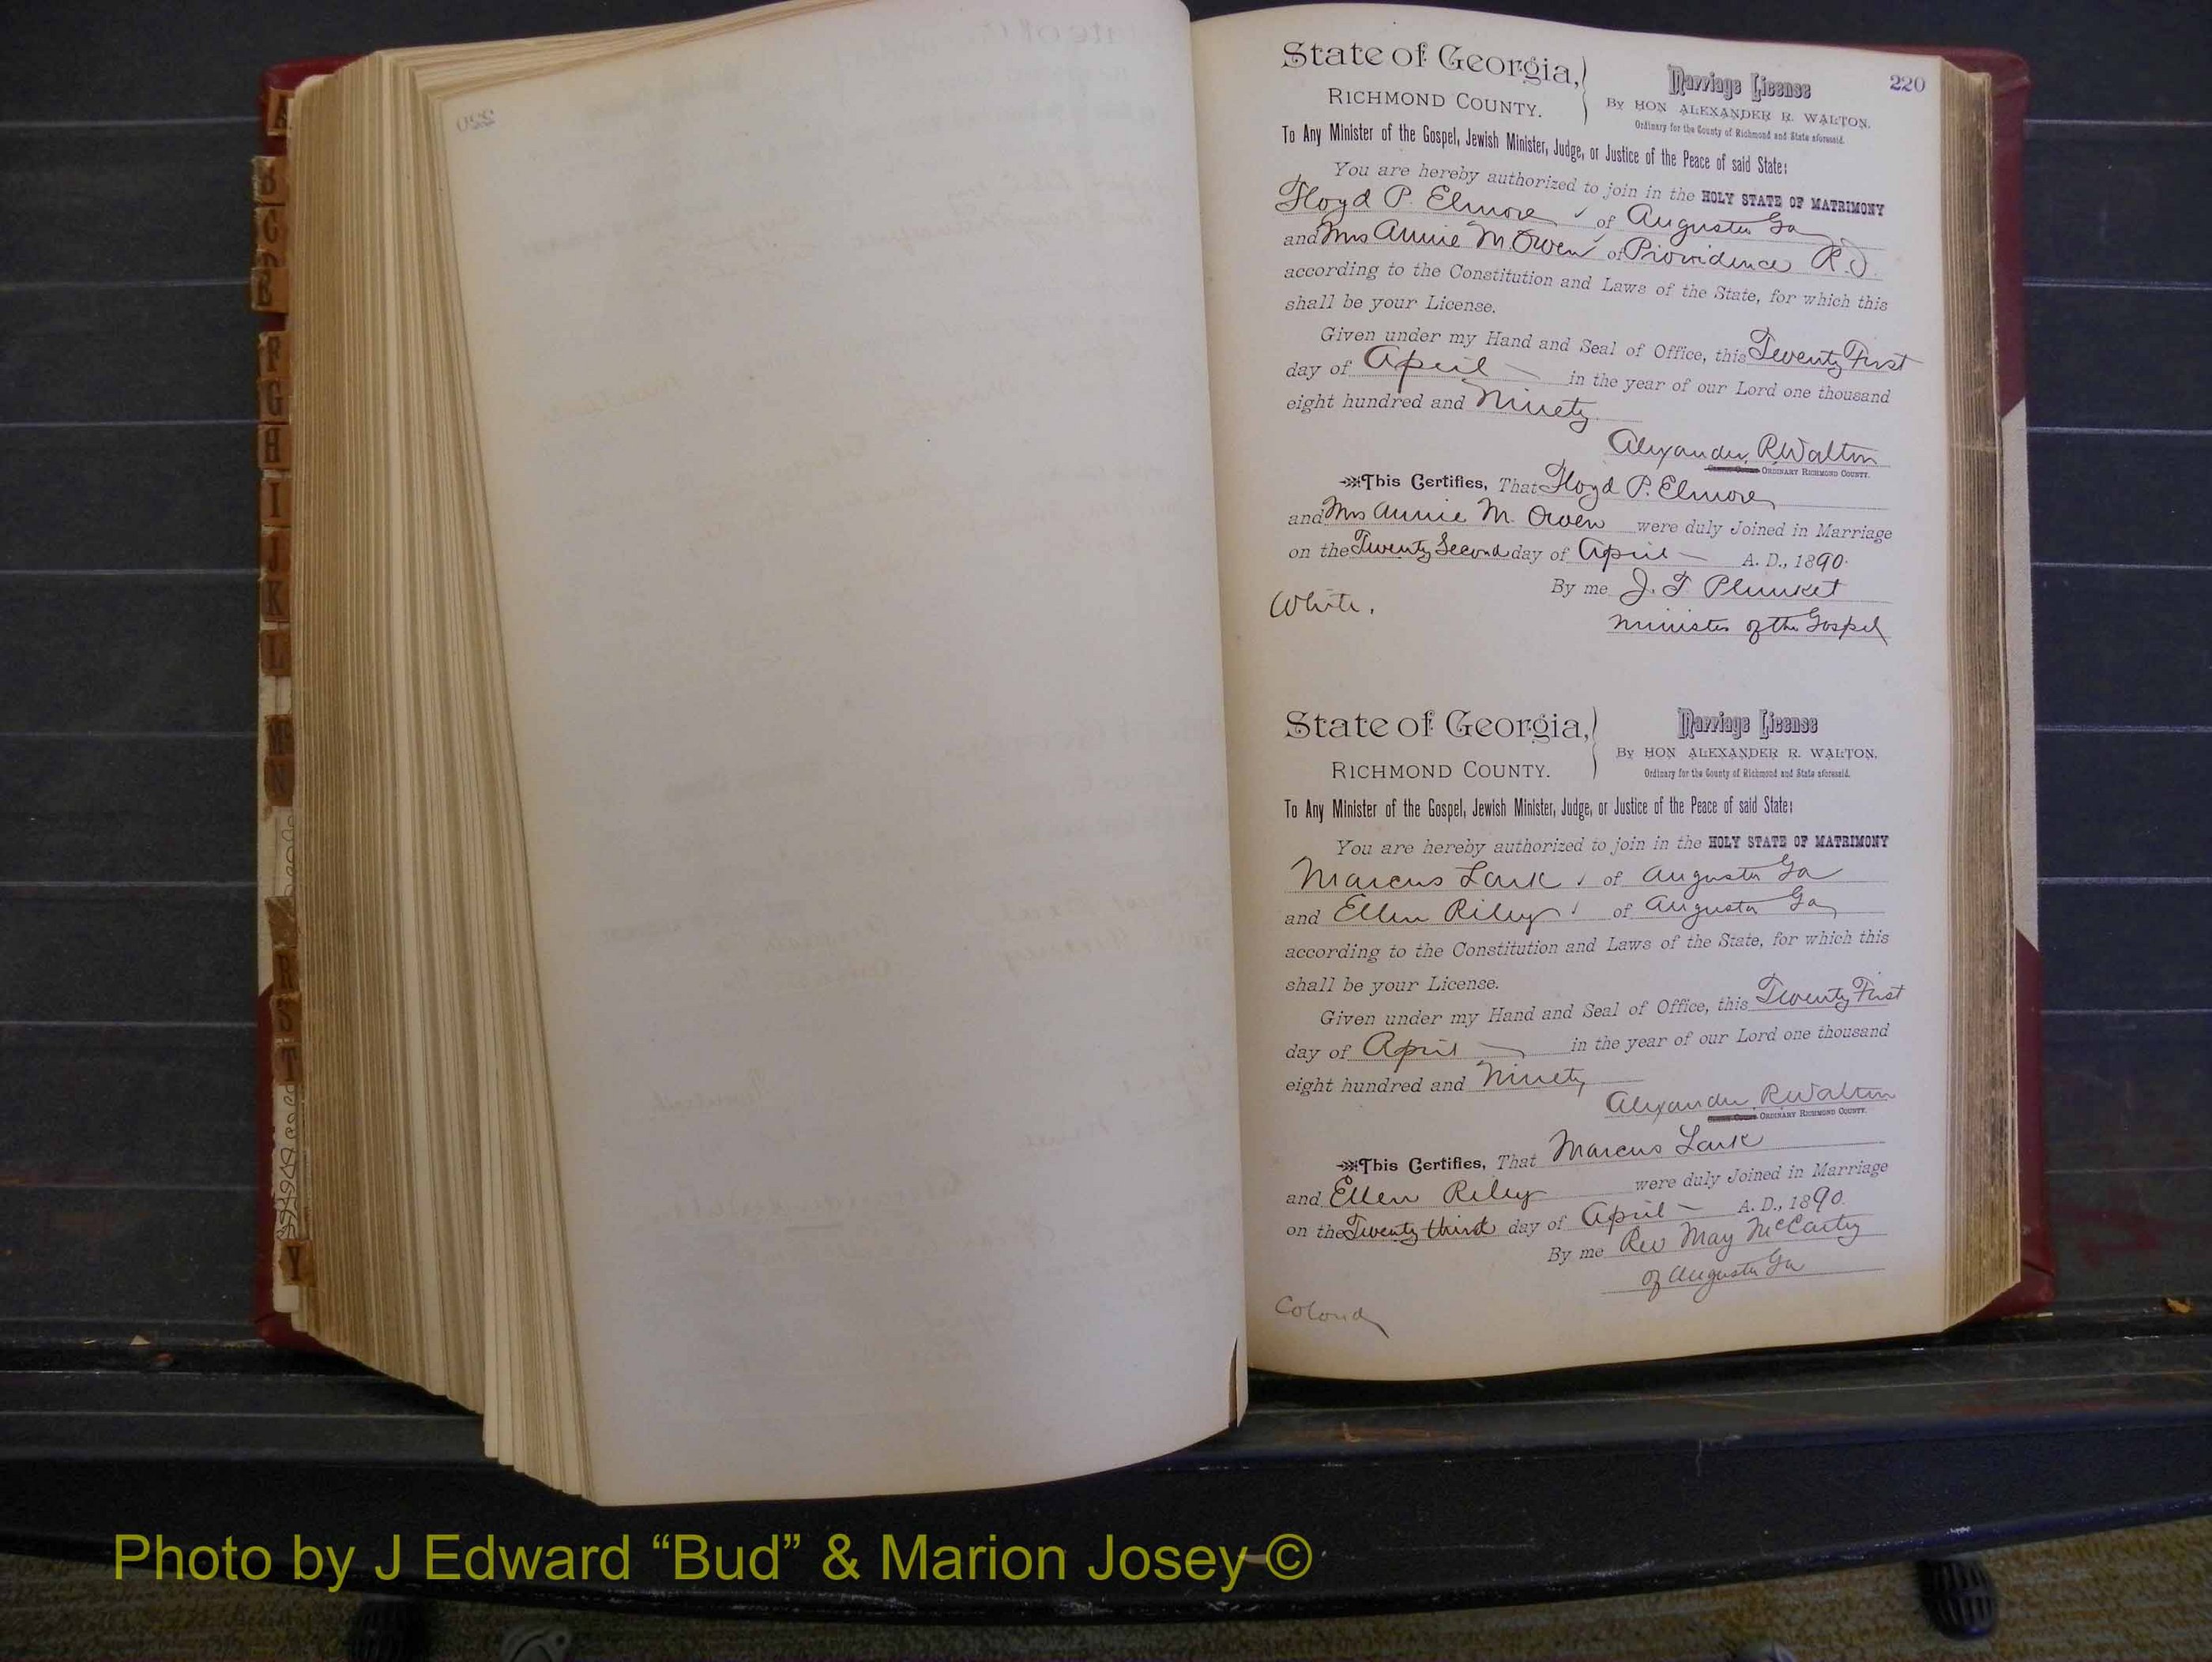 220
State of Georgia,
RICHMOND COUNTY.
Marriage License
By HON ALEXANDER R. WALTON,
Ordinary for the County of Richmond and State aforesaid.
To Any Minister of the Gospel, Jewish Minister, Judge, or Justice of the Peace of said State:
You are hereby authorized to join in the HOLY STATE OF MATRIMONY
Floyd P. Elmore of Augusta Ga
and Mrs Annie M. Owen of Providence R.I.
according to the Constitution and Laws of the State, for which this
shall be your License.
Given under my Hand and Seal of Office, this Twenty First
day of April in the year of our Lord one thousand
eight hundred and Ninety
Alexander R Walton
ORDINARY RICHMOND COUNTY.
This Certifies, That Floyd P. Elmore
and Mrs Annie M. Owen were duly Joined in Marriage
on the Twenty Second day of April A. D., 1890.
By me J. T. Plunket
Minister of the Gospel
White.
State of Georgia,
RICHMOND COUNTY.
Marriage License
By HON ALEXANDER R. WALTON,
Ordinary for the County of Richmond and State aforesaid.
To Any Minister of the Gospel, Jewish Minister, Judge, or Justice of the Peace of said State:
You are hereby authorized to join in the HOLY STATE OF MATRIMONY
Marcus Lark of Augusta Ga
and Ellen Riley of Augusta Ga
according to the Constitution and Laws of the State, for which this
shall be your License.
Given under my Hand and Seal of Office, this Twenty First
day of April in the year of our Lord one thousand
eight hundred and Ninety
Alexander R Walton
ORDINARY RICHMOND COUNTY.
This Certifies, That Marcus Lark
and Ellen Riley were duly Joined in Marriage
on the Twenty third day of April A. D., 1890.
By me Rev May McCarty
of Augusta Ga
Colord
A
B
C
F
G
H
I
J
K
L
M
N
R
S
T
Y
Photo by J Edward “Bud” & Marion Josey ©